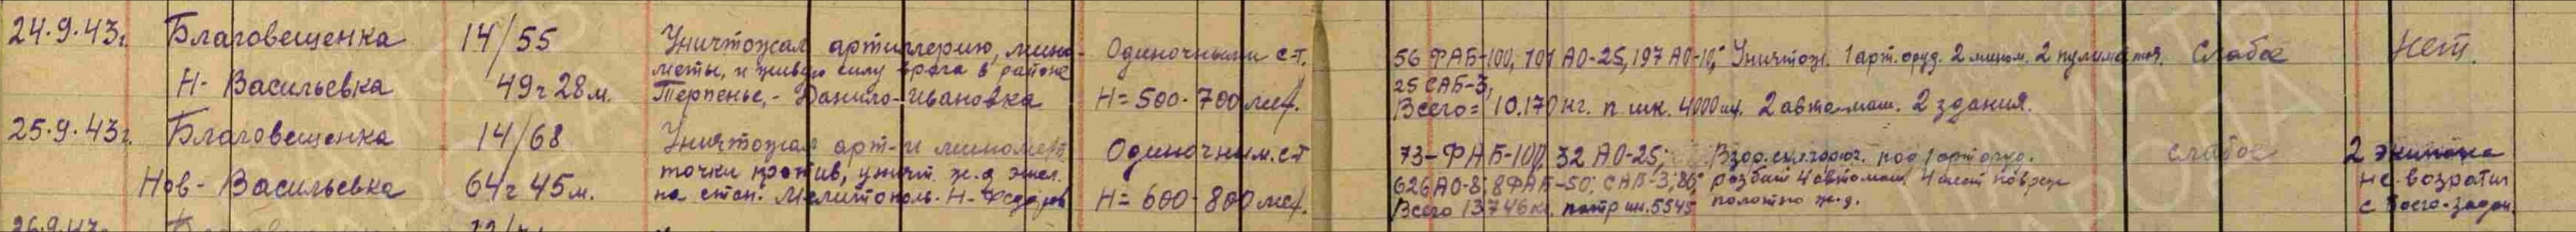 24.9.43г. Благовещенка 14/55 Уничтожал артиллерию, мино- Одиночными с-т. 56 ФАБ-100, 101 АО-25, 197 АО-10, Уничтож. 1 арт. оруд. 2 мином. 2 пулемета. Слабое Нет.
Н-Васильевка 49ч 28м. меты, и живую силу врага в районе 25 САБ-3,
Терпенье,-Данило-Ивановка Н=500-700 мет. Всего= 10.170 кг. п шк. 4000 шт. 2 автомаш. 2 здания.
25.9.43г. Благовещенка 14/68 Уничтожал арт-и миномет Одиночным. с-т 73-ФАБ-100, 32 АО-25, под 1 арт оруд. слабое 2 экипажа
Нов-Васильевка 64ч 45м. точки против, уничт. ж.д эшел. 626 АО-8, 8 ФАБ-50, САБ-3, разбит 4 автомаш. не возратил
на стан. Мелитополь. Н- Н=600-800 мет. Всего 13746 кг. патр шк. 5545 полотно ж.д. с боего-задан.
26.9.43г.